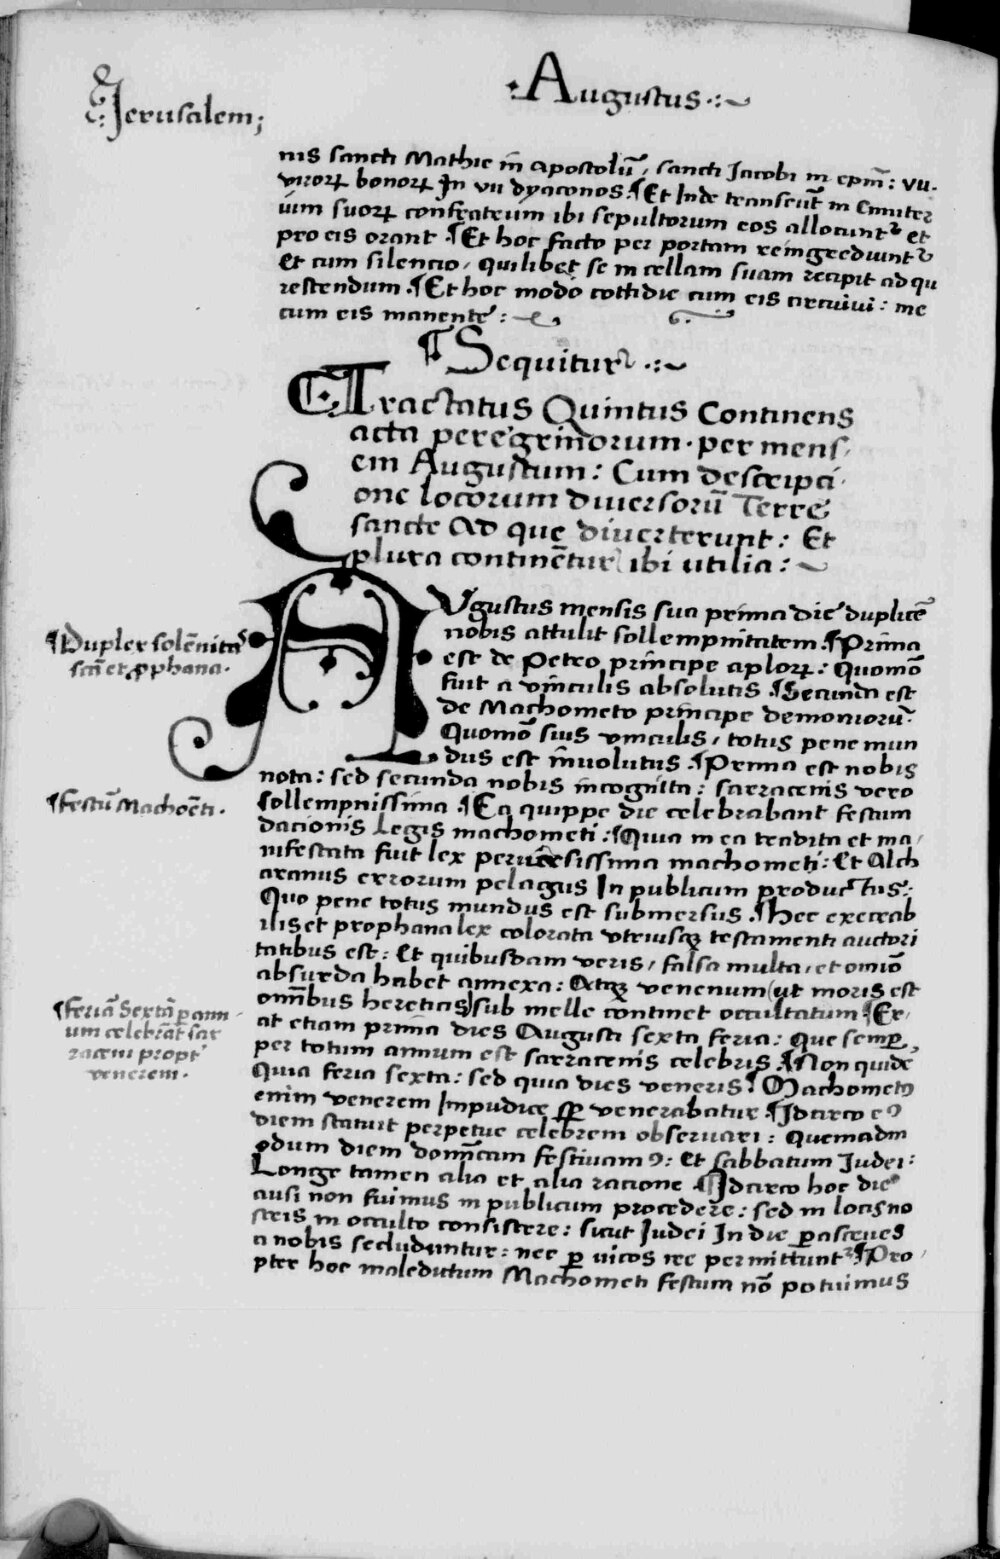 Jerusalem;
·Augustus·:~
nis sancti Mathie in apostolū, sancti Jacobi in epm̄: vii.
virorꝝ bonorꝝ In vii dyaconos. ¶Et Inde transeūt in Cimiter
iūm suorꝝ confratrum ibi sepultorum eos allocuntᷣ et
pro eis orant ¶Et hoc facto per portam reingrediuntᷣ
Et cum silencio, quilibet se in cellam suam recipit ad qu
iescendum ¶Et hoc modo cottidie cum eis circuivi: me
cum eis manente:~
¶Sequitur·:~
Tractatus Quintus Continens
acta peregrinorum· per mens,
em Augustum: Cum descripci·
one locorum diversorū Terre
sancte Ad que diverterunt: Et
plura continēntur ibi utilia:~
AUgustus mensis sua prima die duplicē
nobis attulit sollempnitatem. ¶Prima
est de Petro principe aplorꝝ: Quomō
fuit a vinculis absolutis ¶Secunda est
de Machometo principe demoniorū:
Quomō suis vinculis, totus pene mun
dus est involutus. ¶Prima est nobis
nota: sed secunda nobis incognita: sarracenis vero
sollempnissima ¶Ea quippe die celebrabant festum
dacionis Legis machometi: ¶Quia in ea tradita et ma,
nifestata fuit lex perversissima machometi: Et Alch
aranus errorum pelagus In publicum productus:
Quo pene totus mundus est submersus. ¶Hec execrab
ilis et prophana lex colorata utriusqꝫ testamenti auctori
tatibus est: Et quibusdam veris, falsa multa, et omnō
absurda habet annexa: Atqꝫ venenum (ut moris est
omībus hereticis) sub melle continet occultatum ¶Er,
at etiam prima dies Augusti sexta feria: Que semꝑ,
per totum annum est sarracenis celebris. ¶Non quidē
Quia feria sexta: sed quia dies veneris: ¶Machometꝰ
enim venerem Impudice sꝑ venerabatur. ¶Idcirco eꝰ
diem statuit perpetue celebrem observari: Quemadm
odum diem domīcam festivamꝰ: Et sabbatum Judei:
Longe tamen alia et alia racione ¶Idcirco hoc die
ausi non fuimus in publicum procedere: sed in locis no
stris in occulto consistere: sicut Judei In die ꝑasceves
a nobis secluduntur: nec ꝑ vicos ire permittuntᷣ ¶Pro,
pter hoc maledictum Machometi festum nō potuimus
¶Duplex solēnitaˢ
scā et ꝓphana·
¶Festū Machōeti·
¶Feriā Sextā ꝑ ann
um celebrāt sar
raceni propᵗ
venerem·